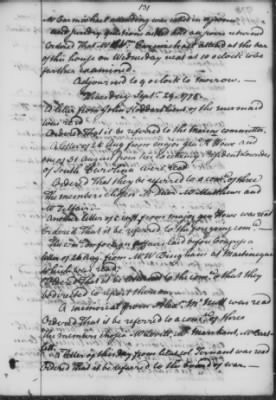 131
Mr Carmichael attending was called in &
and sundry questions asked him and he returned
Ordered That Mr Wm Carmichael attend at the bar
of this house on Wednesday next at 10 o'clock to be
farther examined.
Adjourned to 9 o'clock to Morrow.
Tuesday Septr 29. 1778
A letter from John
was read
Ordered That it be referred to the marine committee,
A letter of 26 Aug from major genl R Howe and
one of 31 August from his excellency president Lowndes
of South Carolina were read
Ordered That they be referred to a comee of three
The members chosen Mr Mathews and
Mr
Another letter of from major gen Howe was read
Ordered That it be referred to the foregoing comee
The comee for foreign affairs laid before Congress a
letter of 26 Aug. from Mr W Bingham at Martinique
which was read;
Ordered That it be returned to the comee & that they
be directed to report thereon
A memorial from was read
Ordered That it be referred to a comee of three
The members chosen Mr Lovell, Mr Marchant, Mr
A letter of this day from lieut col Ternant was read
Ordered That it be referred to the board of war.